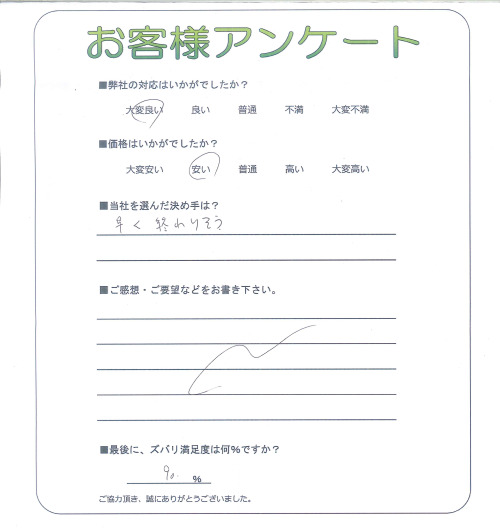 お客様アンケート
■弊社の対応はいかがでしたか？
大変良い 良い 普通 不満 大変不満
■価格はいかがでしたか？
大変安い 安い 普通 高い 大変高い
■当社を選んだ決め手は？
早く終わりそう
■ご感想・ご要望などをお書き下さい。
■最後に、ズバリ満足度は何％ですか？
90. ％
ご協力頂き、誠にありがとうございました。